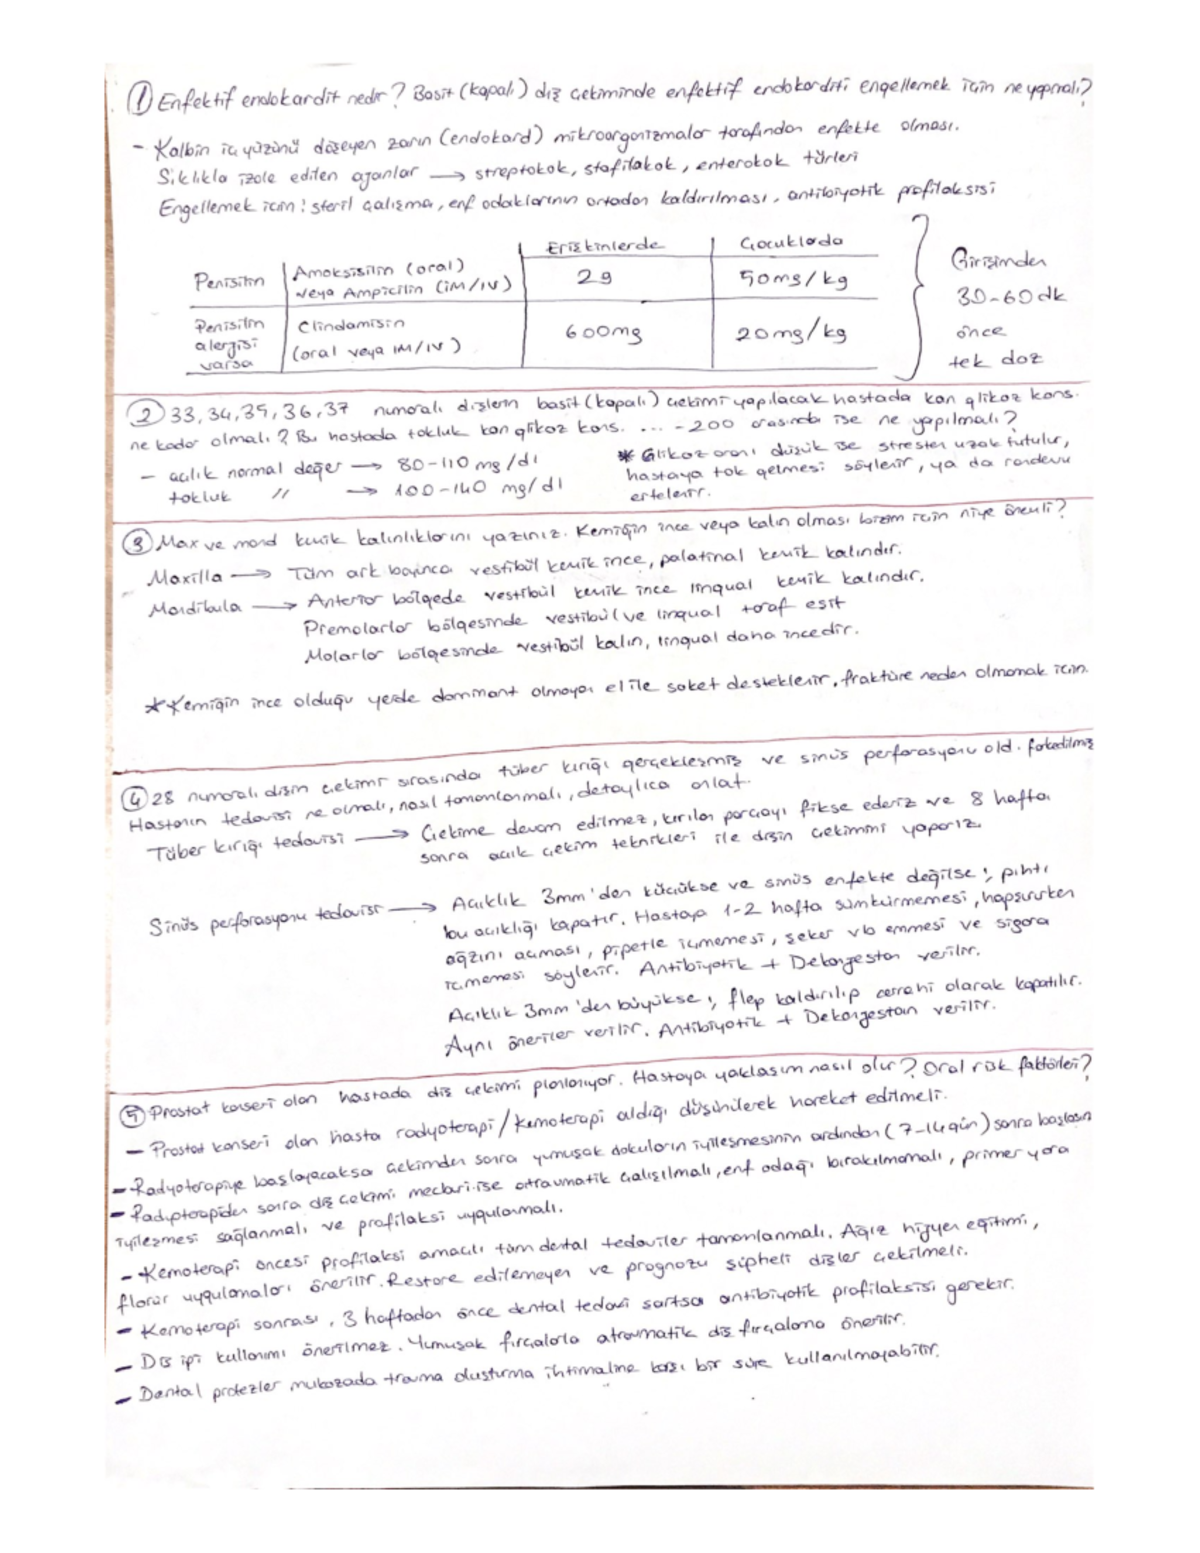 ① Enfektif endokardit nedir? Basit (kapalı) diş çekiminde enfektif endokarditi engellemek için ne yapmalı?
- Kalbin iç yüzünü döşeyen zarın (endokard) mikroorganizmalar tarafından enfekte olması.
Sıklıkla izole edilen ajanlar → streptokok, stafilakok, enterokok türleri
Engellemek için: steril çalışma, enf odaklarının ortadan kaldırılması, antibiyotik profilaksisi
Erişkinlerde Çocuklarda
Penisilin Amoksisilin (oral) veya Ampicilin (IM/IV) 2g 50mg/kg
Penisilin alerjisi varsa Clindamisin (oral veya IM/IV) 600mg 20mg/kg
Girişimden
30-60 dk
önce
tek doz
② 33, 34, 35, 36, 37 numaralı dişlerin basit (kapalı) çekimi yapılacak hastada kan glikoz kons.
ne kadar olmalı? Bu hastada tokluk kan glikoz kons. ... -200 arasında ise ne yapılmalı?
- açlık normal değer → 80-110 mg/dl
tokluk " → 100-140 mg/dl
* Glikoz oranı düşük ise stresten uzak tutulur,
hastaya tok gelmesi söylenir, ya da randevu
ertelenir.
③ Max ve mand kemik kalınlıklarını yazınız. Kemiğin ince veya kalın olması bizim için niye önemli?
Maxilla → Tüm ark boyunca vestibül kemik ince, palatinal kemik kalındır.
Mandibula → Anterior bölgede vestibül kemik ince lingual kemik kalındır.
Premolarlar bölgesinde vestibül ve lingual taraf eşit
Molarlar bölgesinde vestibül kalın, lingual daha incedir.
* Kemiğin ince olduğu yerde dominant olmayan el ile soket desteklenir, fraktüre neden olmamak için.
④ 28 numaralı dişin çekimi sırasında tüber kırığı gerçekleşmiş ve sinüs perforasyonu old. farkedilmiş
Hastanın tedavisi ne olmalı, nasıl tamamlanmalı, detaylıca anlat.
Tüber kırığı tedavisi → Çekime devam edilmez, kırılan parçayı fikse ederiz ve 8 hafta
sonra açık çekim teknikleri ile dişin çekimini yaparız
Sinüs perforasyonu tedavisi → Açıklık 3mm'den küçükse ve sinüs enfekte değilse; pıhtı
bu açıklığı kapatır. Hastaya 1-2 hafta sümkürmemesi, hapşırırken
ağzını açması, pipetle içmemesi, şeker vb emmesi ve sigara
içmemesi söylenir. Antibiyotik + Dekonjestan verilir.
Açıklık 3mm'den büyükse; flep kaldırılıp cerrahi olarak kapatılır.
Aynı öneriler verilir. Antibiyotik + Dekonjestan verilir.
⑤ Prostat kanseri olan hastada diş çekimi planlanıyor. Hastaya yaklaşım nasıl olur? Oral risk faktörleri?
- Prostat kanseri olan hasta radyoterapi/kemoterapi aldığı düşünülerek hareket edilmeli.
- Radyoterapiye başlayacaksa çekimden sonra yumuşak dokuların iyileşmesinin ardından (7-14 gün) sonra başlasın
- Radyoterapiden sonra diş çekimi mecburi ise atravmatik çalışılmalı, enf odağı bırakılmamalı, primer yara
iyileşmesi sağlanmalı ve profilaksi uygulanmalı.
- Kemoterapi öncesi profilaksi amaçlı tüm dental tedaviler tamamlanmalı. Ağız hijyen eğitimi,
florür uygulamaları önerilir. Restore edilemeyen ve prognozu şüpheli dişler çekilmeli.
- Kemoterapi sonrası, 3 haftadan önce dental tedavi şartsa antibiyotik profilaksisi gerekir.
- Diş ipi kullanımı önerilmez. Yumuşak fırçalarla atravmatik diş fırçalama önerilir.
- Dental protezler mukozada travma oluşturma ihtimaline karşı bir süre kullanılmayabilir.